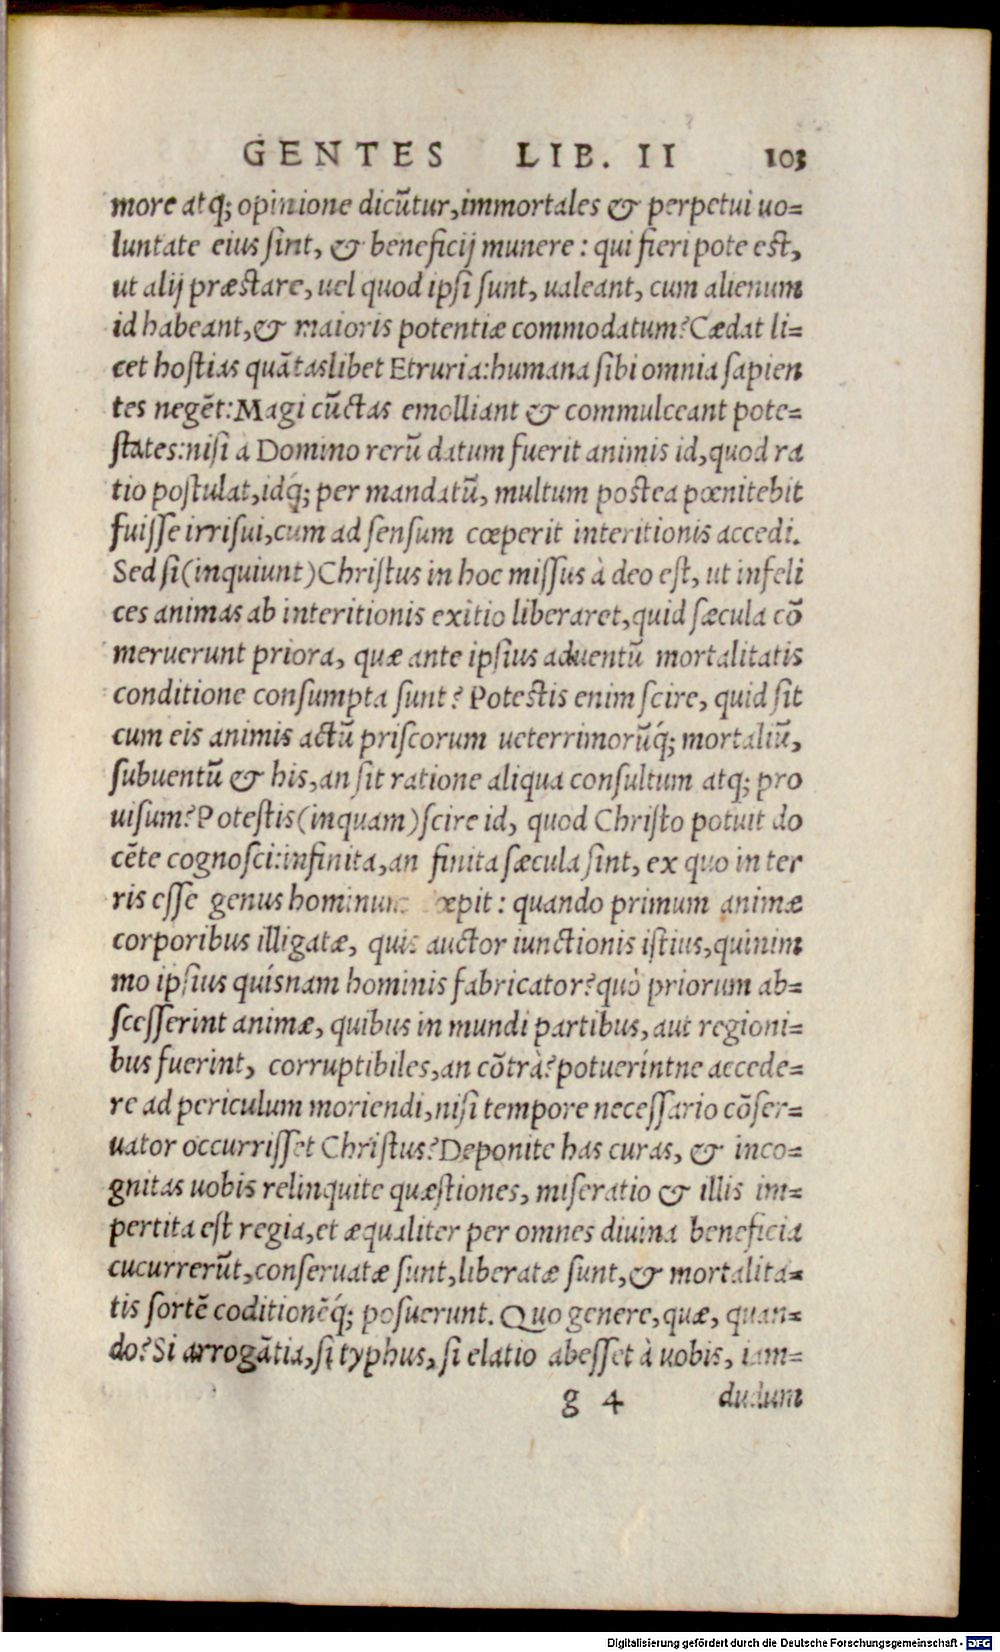 GENTES LIB. II 103
more atq; opinione dicũtur, immortales & perpetui uo=
luntate eius sint, & beneficij munere : qui fieri pote est,
ut alij præstare, uel quod ipsi sunt, ualeant, cum alienum
id habeant, & maioris potentiæ commodatum? Cædat li=
cet hostias quãtaslibet Etruria: humana sibi omnia sapien
tes negẽt: Magi cũctas emolliant & commulceant pote=
states: nisi a Domino rerũ datum fuerit animis id, quod ra
tio postulat, idq́; per mandatũ, multum postea pœnitebit
fuisse irrisui, cum ad sensum cœperit interitionis accedi.
Sed si (inquiunt) Christus in hoc missus à deo est, ut infeli
ces animas ab interitionis exitio liberaret, quid sæcula cõ
meruerunt priora, quæ ante ipsius aduentũ mortalitatis
conditione consumpta sunt? Potestis enim scire, quid sit
cum eis animis actũ priscorum ueterrimorũq́; mortaliũ,
subuentũ & his, an sit ratione aliqua consultum atq; pro
uisum? Potestis (inquam) scire id, quod Christo potuit do
cẽte cognosci: infinita, an finita sæcula sint, ex quo in ter
ris esse genus hominum œpit : quando primum animæ
corporibus illigatæ, quis auctor iunctionis istius, quinim
mo ipsius quísnam hominis fabricator? quò priorum ab=
scesserint animæ, quibus in mundi partibus, aut regioni=
bus fuerint, corruptibiles, an cõtrà? potueríntne accede=
re ad periculum moriendi, nisi tempore necessario cõser=
uator occurrisset Christus? Deponite has curas, & inco=
gnitas uobis relinquite quæstiones, miseratio & illis im=
pertita est regia, et æqualiter per omnes diuina beneficia
cucurrerũt, conseruatæ sunt, liberatæ sunt, & mortalita=
tis sortẽ coditionẽq́; posuerunt. Quo genere, quæ, quan=
do? Si arrogãtia, si typhus, si elatio abesset à uobis, iam=
g 4 dudum
Digitalisierung gefördert durch die Deutsche Forschungsgemeinschaft - DFG